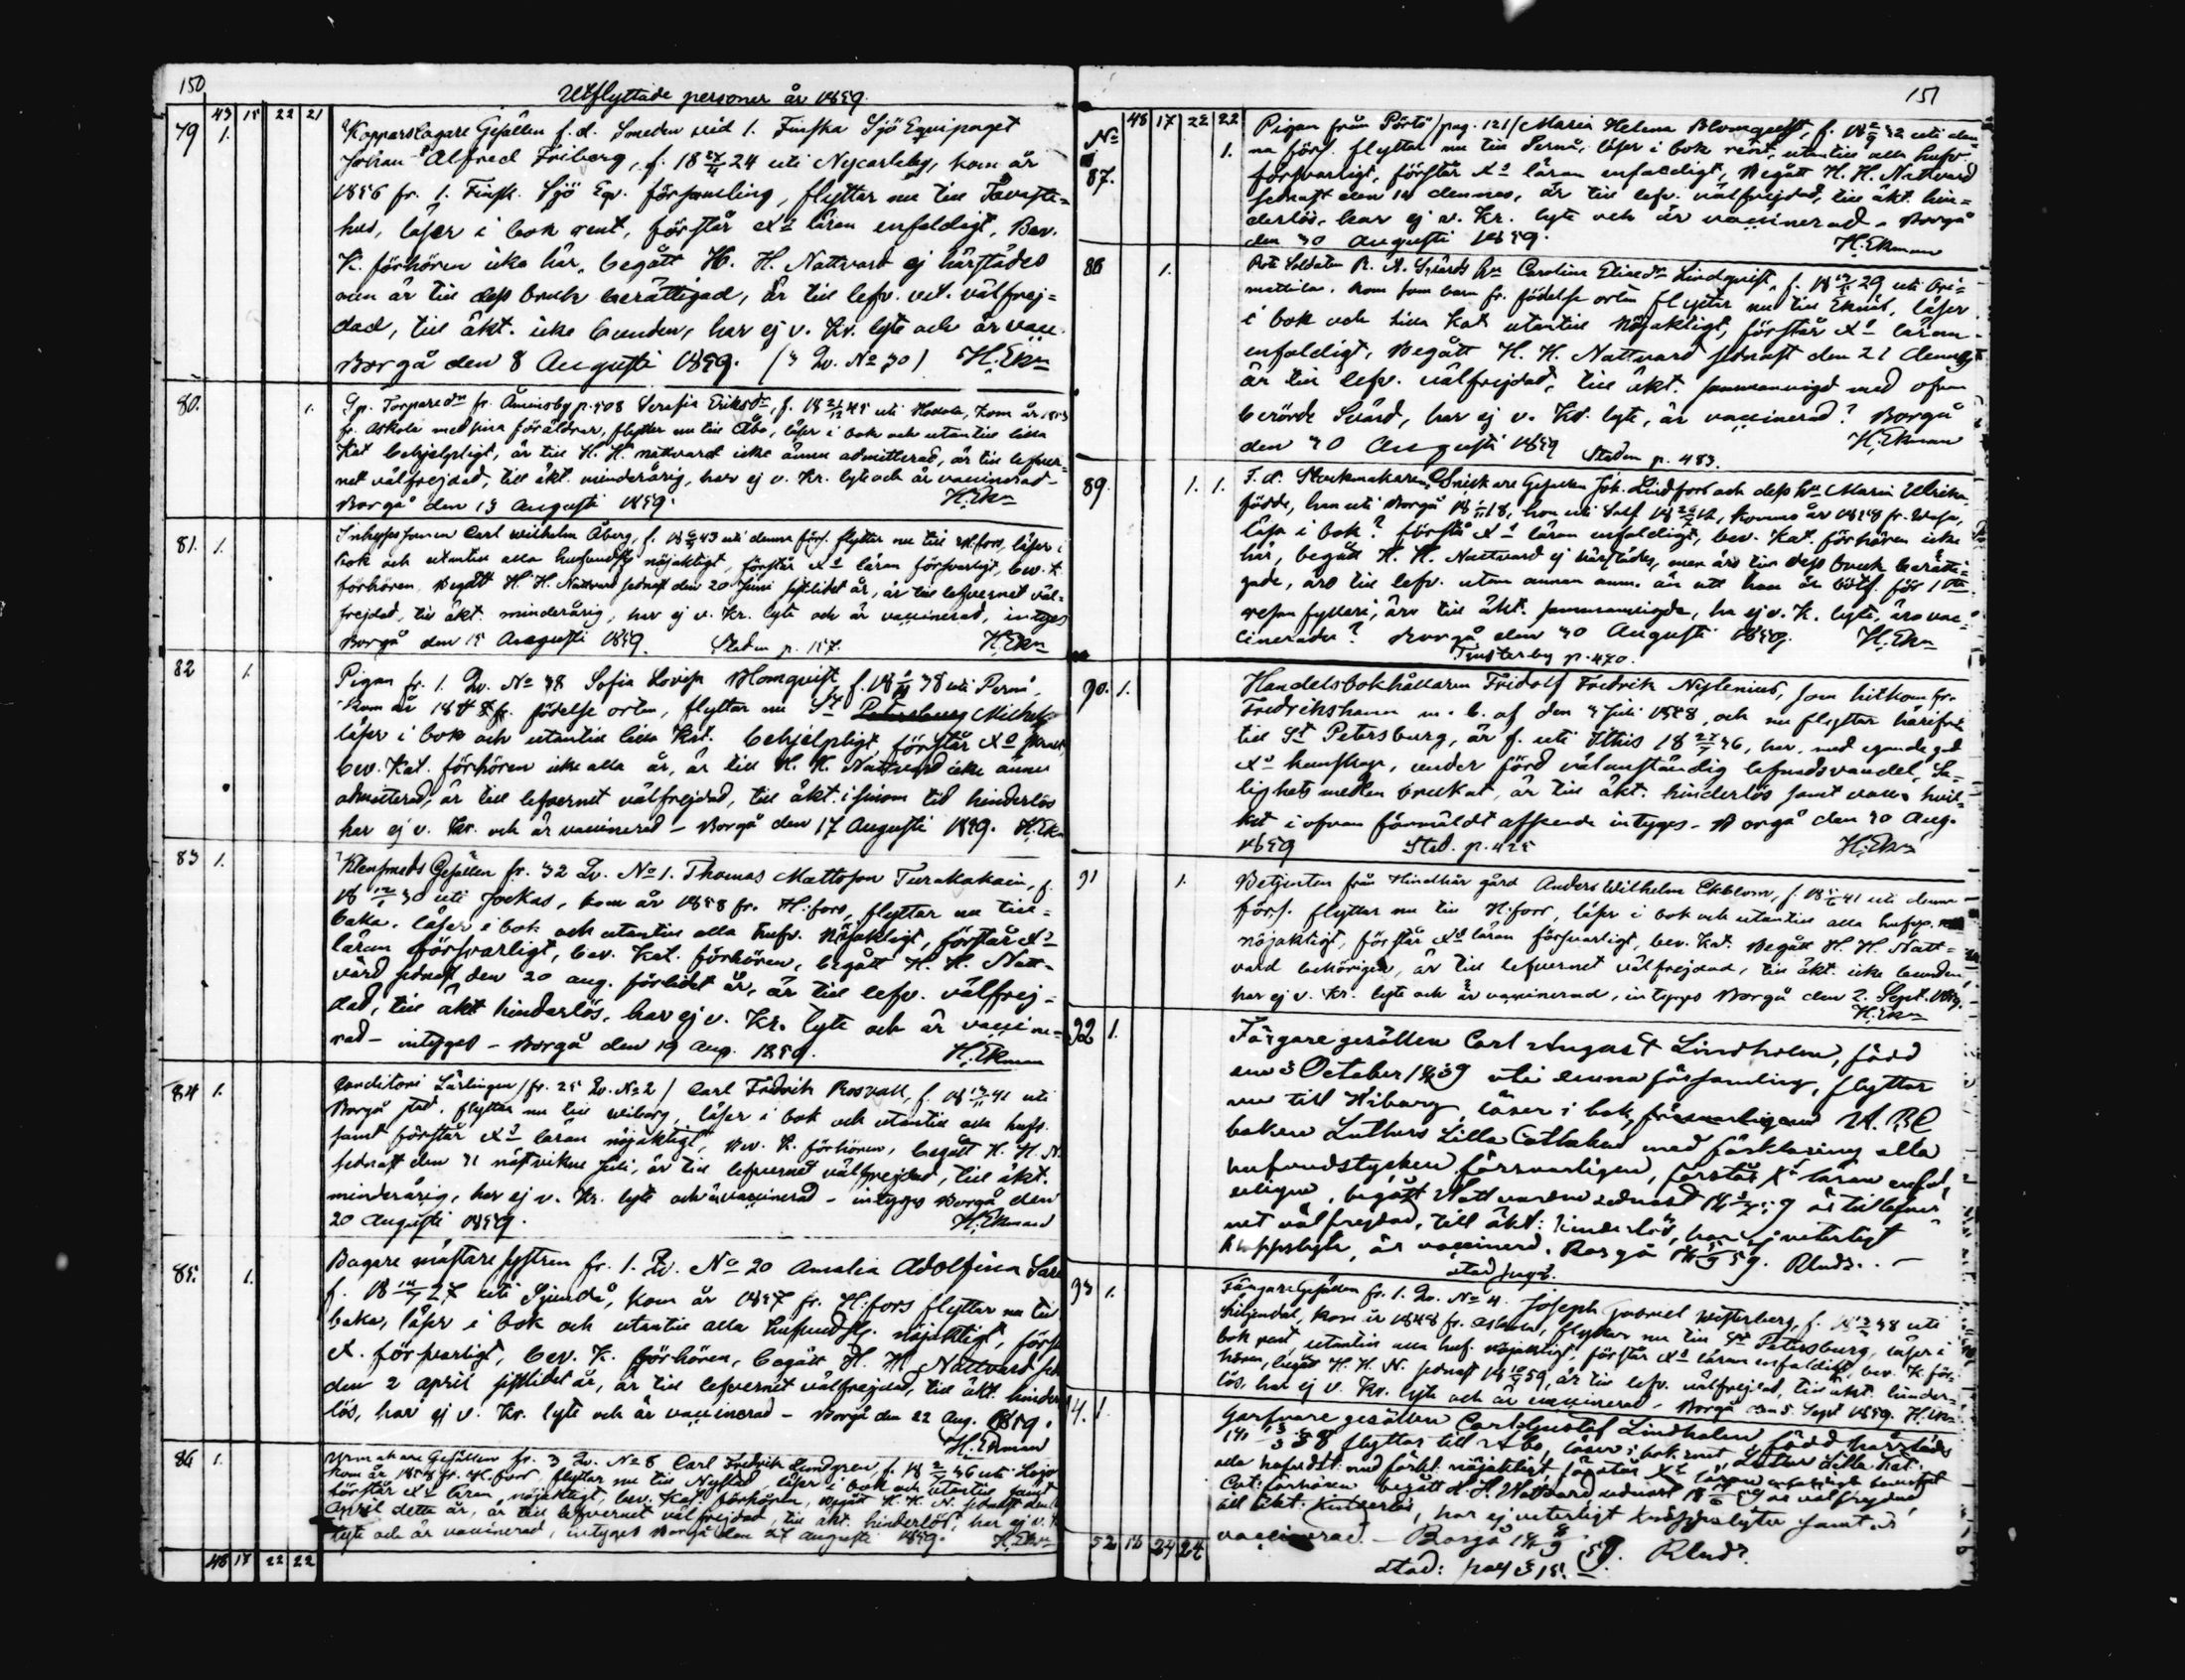 150
Utflyttade personer år 1859.
43 15 22 21
79 1. Kopparslagare Gesällen f. d. Smeden vid 1. Finska Sjö Equipaget
Johan Alfred Friberg, f. 18 27/4 24 uti Nycarleby, kom år
1856 fr. 1. Finsk. Sjö Eqv. församling, flyttar nu till Tavaste=
hus, läser i bok rent, förstår Xs läran enfaldigt, Bev.
K. förhören icke här, begått H. H. Nattvard ej härstädes
men är till dess bruk berättigad, är till lefv. vel. välfrej=
dad, till äkt. icke bunden, har ej v. Kr. lyte och är vacc.
Borgå den 8 Augusti 1859. (3 Qv. No 30) H. Ekn
80. 1. Torparedr fr. Åminsby p. 508 Serafia Eriksdr, f. 18 21/12 45 uti, kom år
fr. Askola med sina föräldrar, flyttar nu till Åbo, läser i bok och utantill lilla
Kat behjelpligt, är till H. H. nattvard icke ännu admitterad, är till lefver=
net välfrejdad, till äkt. minderårig, har ej v. Kr. lyte och är vaccinerad
Borgå den 13 Augusti 1859. H. Ekn
81. 1. Carl Wilhelm Åberg, f. 43 uti denna förs. flyttar nu till H:fors, läser i
bok och utantill alla hufvudst. nöjaktigt, förstår Xs läran försvarligt, bev. K.
förhören, Begått H. H. Nattvard sednast den 20 Juni sistlidet år, är till lefvernet väl=
frejdad, till äkt. minderårig, har ej v. Kr. lyte och är vaccinerad, intyges
Borgå den 15 Augusti 1859. Staden p. 157. H. Ekn
82 1. Pigan fr. 1. Qv. No 38 Sofia Lovisa Blomqvist f. 38 uti Pernå,
kom år fr. födelse orten, flyttar nu St Petersburg Michels
läser i bok och utantill lilla Kat. behjelpligt, förstår Xs
bev. Kat. förhören icke alla år, är till H. H. Nattvard icke ännu
admitterad, är till lefvernet välfrejdad, till äkt. i sinom tid hinderlös
har ej v. Kr. och är vaccinerad – Borgå den 17 Augusti 1859. H. Ekn
83 1. Klensmeds Gesällen fr. 32 Qv. No 1. Thomas Mattsson Turakakain, f.
30 uti Jockas, kom år 1858 fr. H:fors, flyttar nu till=
baka, läser i bok och utantill alla hufv. nöjaktigt, förstår Xs
läran försvarligt, bev. Kat. förhören, begått H. H. Natt=
vard sednast den 20 aug. förlidet år, är till lefv. välfrej=
dad, till äkt hinderlös, har ej v. Kr. lyte och är vaccine=
rad – intyges – Borgå den 19 Aug. 1859. H. Ekman
84 1. Conditori Lärlingen / fr. 25 Qv. No 2 / Carl Fredrik Rosvall, f. 41 uti
Borgå stad, flyttar nu till Wiborg, läser i bok och utantill alla hufv.
samt förstår Xs läran nöjaktigt, Bev. K. förhören, begått H. H. N.
sednast den 31 nästvikne Juli, är till lefvernet välfrejdad, till äkt.
minderårig, har ej v. Kr. lyte och är vaccinerad – intyges Borgå den
20 augusti 1859. H. Ekman
85. 1. Bagare mästare systren fr. 1. Qv. No 20 Amalia Adolfina
f. 27 uti Sjundå, kom år 1857 fr. H:fors flyttar nu till
baka, läser i bok och utantill alla hufvudst. nöjaktigt, förs
X. försvarligt, bev. K. förhören, begått H. H. Nattvard sed
den 2 april sistlidet år, är till lefvernet välfrejdad, till äkt. hinder
lös, har ej v. Kr. lyte och är vaccinerad – Borgå den 22 Aug. 1859.
H. Ekman
86 1. Urmakare Gesällen fr. 3 Qv. No 8 Carl Fredrik Lundgren, f. 36 uti Lojo
kom år 1858 fr. H:fors, flyttar nu till Nystad, läser i bok och utantill samt
förstår Xs läran nöjaktigt, bev. Kat. förhören, Begått H. H. N. sednast den
April detta år, är till lefvernet välfrejdad, till äkt. hinderlös, har ej v. K
lyte och är vaccinerad, intyges Borgå den 27 augusti 1859. H. Ekn
48 17 22 22
151
No 48 17 22 22
87. 1. Pigan från Pörtö / pag. 121 / Maria Helena Blomqvist, f. 32 uti den=
na förs. flyttar nu till Pernå, läser i bok rent, utantill alla hufv.
försvarligt, förstår Xs läran enfaldigt, Begått H. H. Nattvard
sednast den 14 dennes, är till lefv. välfrejdad, till äkt. hin=
derlös, har ej v. Kr. lyte och är vaccinerad – Borgå
den 30 Augusti 1859. H. Ekman
88 1. Rote Soldaten R. A. Svärds hu Carolina Elisedr Lindqvist, f. 29 uti
kom som barn fr. födelse orten flyttar nu till Ekenäs, läser
i bok och lilla Kat utantill nöjaktigt, förstår Xs läran
enfaldigt, Begått H. H. Nattvard sednast den 21 dennes,
är till lefv. välfrejdad, till äkt. sammanvigd med ofvan
berörde Svärd, har ej v. Kr. lyte, är vaccinerad? Borgå
den 30 Augusti 1859 Staden p. 483. H. Ekman
89. 1. 1. F. d. Stockmakaren, Snickare Gesällen Joh. Lindfors och dess hu Maria Ulrika,
födde, han uti Borgå 18, hon uti Solf 12, komna år 1858 fr. Wasa,
läsa i bok? förstå Xs läran enfaldigt, bev. Kat. förhören icke
här, begått H. H. Nattvard ej härstädes, men äro till dess bruk berätti=
gade, äro till lefv. utan annan anm. än att han är bötf. för 1 sta
resan fylleri, äro till äkt. sammanvigda, ha ej v. K. lyte, äro vac=
cinerade? Borgå den 30 Augusti 1859. H. Ekn
Tjusterby p. 470.
90. 1. Handelsbokhållaren Fridolf Fredrik Nylenius, som hitkom fr.
Fredrikshamn m. b. af den 3 Juli 1858, och nu flyttar härifrån
till St Petersburg, är f. uti Ithis 18 27/7 36, har, med egande god
Xs kunskap, under förd välanständig lefnadsvandel, Sa=
lighets medlen brukat, är till äkt. hinderlös samt vacc. hvil=
ket i ofvan förmäldt afseende intyges – Borgå den 30 Aug.
1859 Stad. p. 425 H. Ekn
91 1. Betjenten från Hindhår gård Anders Wilhelm Ekblom, f. 41 uti denna
förs. flyttar nu till H:fors, läser i bok och utantill alla hufv.
nöjaktigt, förstår Xs läran försvarligt, bev. Kat. Begått H. H. Natt=
vard behörigen, är till lefvernet välfrejdad, till äkt. icke bunden,
har ej v. Kr. lyte och är vaccinerad, intyges Borgå den 2. Sept. 1859.
H. Ekn
92 1. Färgare gesällen Carl August Lindholm, född
den 3 October 1839 uti denna församling, flyttar
nu till Wiborg, läser i bok, A. B. C
boken Luthers Lilla Cathekes med förklaring alla
hufvudstycken försvarligen, förstår Xs läran enfal,
deligen, begått Nattvarden sednast är till lefver
net välfrejdad, till äkt: hinderlös, har ej veterligt
kroppslyte, är vaccinerad. Borgå 18 5/9 59.
93 1. Gesällen fr. 1. Qv. No 4. Joseph Gabriel Westerberg, f. 38 uti
Liljendal, kom år 1848 fr. Askola, flyttar nu till St Petersburg, läser i
bok rent, utantill alla huf. nöjaktigt, förstår Xs läran enfaldigt, bev. K. för=
hören, begått H. H. N. sednast 59, är till lefv. välfrejdad, till äkt. hinder=
lös, har ej v. Kr. lyte och är vaccinerad – Borgå den 5. Sept 1859. H. Ekn
94. 1. Garfvare gesällen Carl Gustaf Lindholm, född härstädes
38 flyttar till Åbo, läser i bok rent, Luther Lilla Kat.
alla hufvudst: med förkl. nöjaktigt, förstår Xs läran
Cat: förhören begått d. H. Nattvard sednast är välfrejdad
till äkt: hinderlös, har ej veterligt kroppslyte samt är
vaccinerad. – Borgå 18 8/9 59.
52 18 24 24